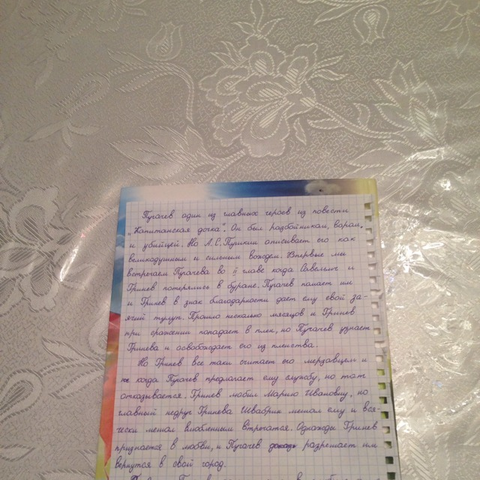 Пугачев один из главных героев из повести
„Капитанская дочка". Он был разбойником, вором,
и убийцей. Но А.С.Пушкин описывает его как
великодушным и сильным вождем. Впервые мы
встречаем Пугачева во 2 главе когда Савельич и
Гринев потерялись в буране. Пугачев помает им
и Гринев в знак благодарности дает ему свой за-
ячий тулуп. Прошло несколько месяцев и Гринев
при сражении попадает в плен, но Пугачев узнает
Гринева и освобождает его из пленства.
Но Гринев все таки считает его мерзавцем и
когда Пугачев предлагает ему службу, но тот
отказывается. Гринев любит Марию Ивановну, но
главный недруг Гринева Швабрин мешал ему и вся-
чески мешал влюбленным встречатся. Однажды Гринев
признается в любви, и Пугачев разрешает им
вернутся в свой город.